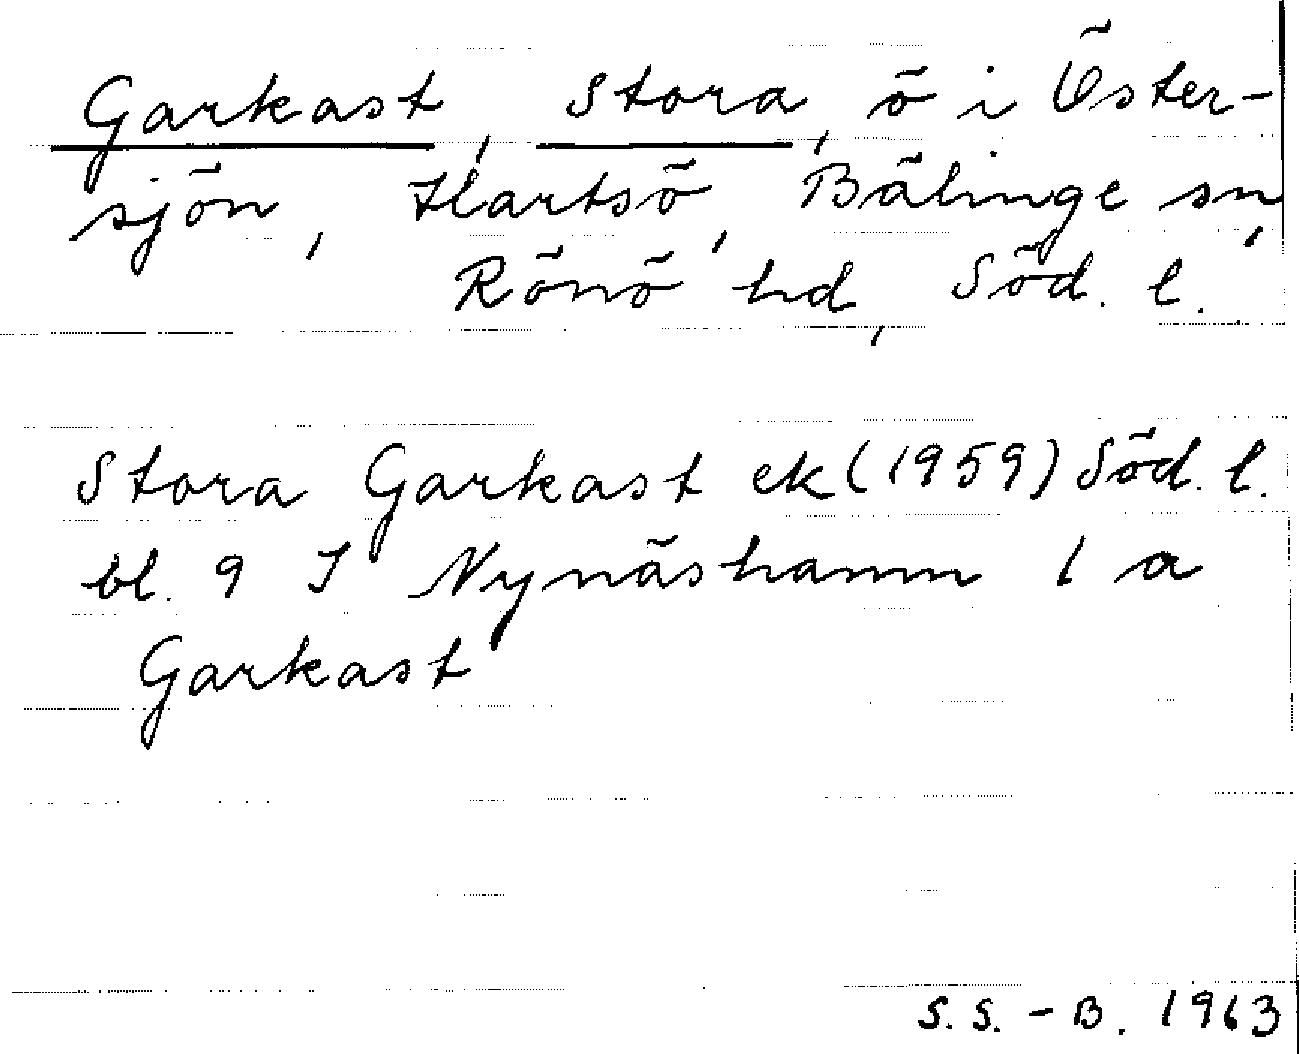 Garkast, Stora, ö i Öster-
sjön, Hartsö, Bälinge sn,
Rönö hd, Söd. l.
Stora Garkast ek (1959) Söd. l.
bl. 9 I Nynäshamn 1 a
Garkast
S. S. - B. 1963